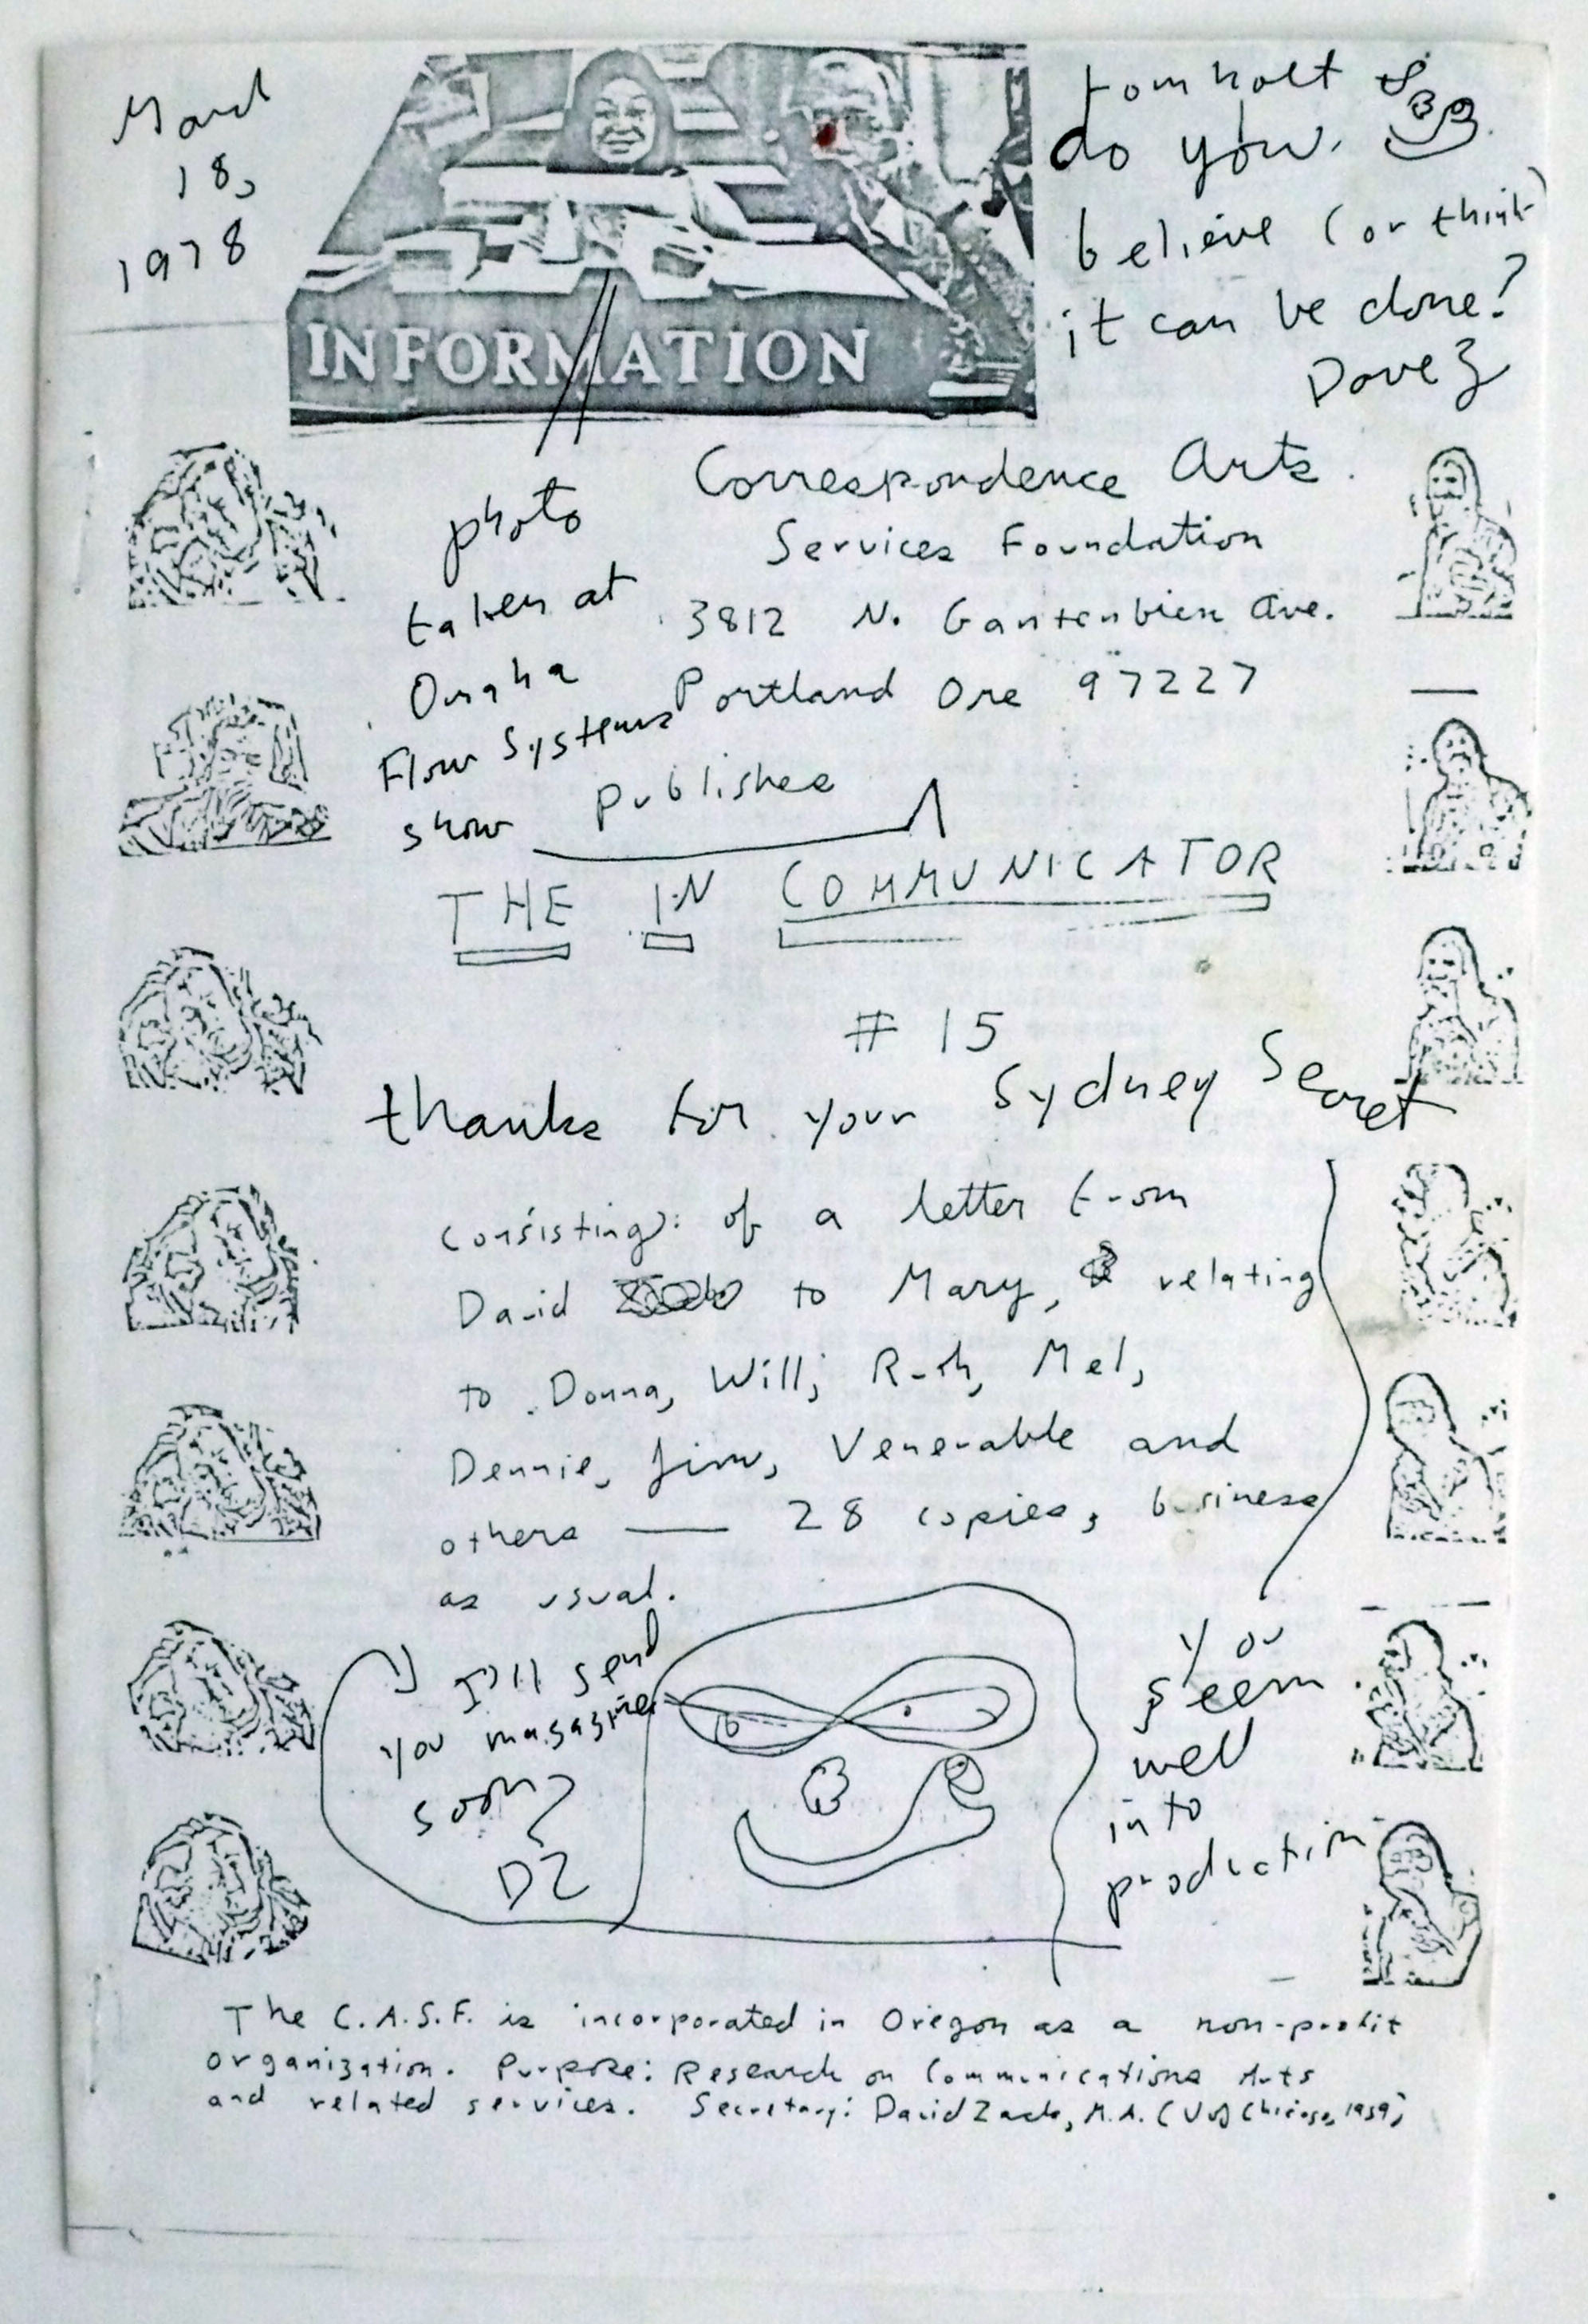 March
18,
1978
INFORMATION
tom holt
do you
believe (or think)
it can be done?
Dave Z
photo
taken at
Omaha
Flow Systems
show
Correspondence Arts
Services Foundation
3812 N. Gantenbien Ave.
Portland Ore 97227
Publishes
THE IN COMMUNICATOR
# 15
thanks for your Sydney Secret
consisting: of a letter from
David to Mary, relating
to Donna, Will, Ruth, Mel,
Dennie, Jim, Venerable and
others — 28 copies, business
as usual.
I'll send
you magazine
soon
DZ
you
seem
well
into
production
The C.A.S.F. is incorporated in Oregon as a non-profit
organization. Purpose: Research on Communications Arts
and related services. Secretary: David Zack, M.A. (U of Chicago, 1959)